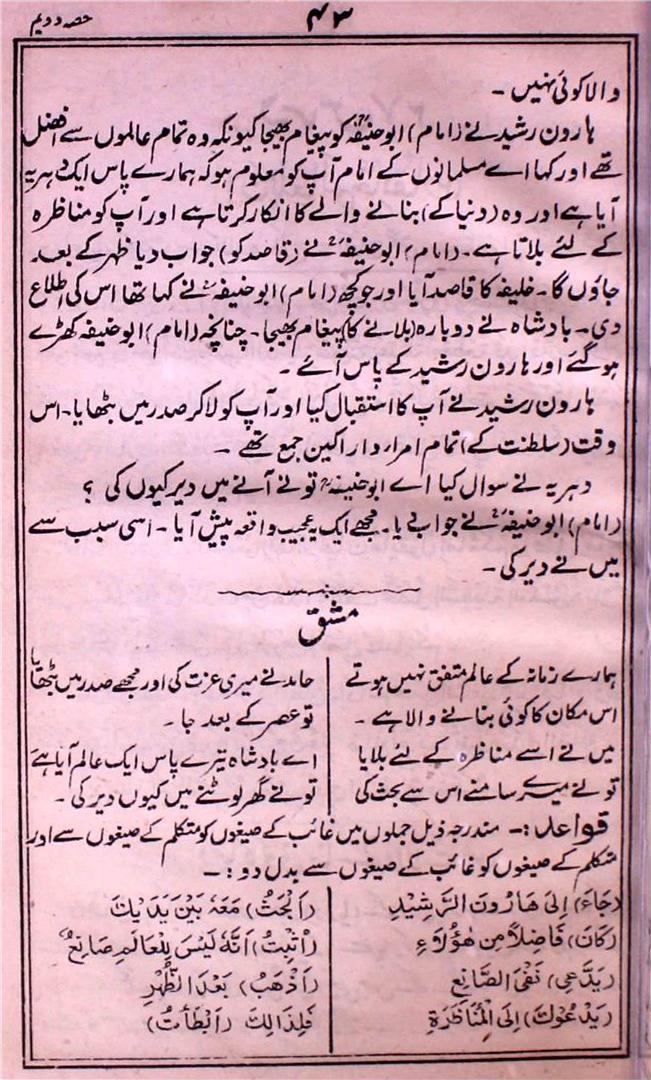 حصہ دویم
۴۳
والا کوئی نہیں ۔
ہارون رشید نے (امام) ابوحنیفہؒ کو پیغام بھیجا کیونکہ وہ تمام عالموں سے افضل
تھے اور کہا اے مسلمانوں کے امام آپ کو معلوم ہو کہ ہمارے پاس ایک دہریہ
آیا ہے اور وہ (دنیا کے) بنانے والے کا انکار کرتا ہے اور آپ کو مناظرہ
کے لئے بلاتا ہے ۔ (امام) ابوحنیفہؒ نے (قاصد کو) جواب دیا ظہر کے بعد
جاؤں گا ۔ خلیفہ کا قاصد آیا اور جو کچھ (امام) ابوحنیفہؒ نے کہا تھا اس کی اطلاع
دی ۔ بادشاہ نے دوبارہ (بلانے کا) پیغام بھیجا ۔ چنانچہ (امام) ابوحنیفہ کھڑے
ہو گئے اور ہارون رشید کے پاس آئے ۔
ہارون رشید نے آپ کا استقبال کیا اور آپ کو لا کر صدر میں بٹھایا ۔ اس
وقت (سلطنت کے) تمام امراء و اراکین جمع تھے ۔
دہریہ نے سوال کیا اے ابوحنیفہؒ تو نے آنے میں دیر کیوں کی ؟
(امام) ابوحنیفہؒ نے جواب دیا ۔ مجھے ایک عجیب واقعہ پیش آیا ۔ اسی سبب سے
میں نے دیر کی ۔
مشق
ہمارے زمانہ کے عالم متفق نہیں ہوتے
اس مکان کا کوئی بنانے والا ہے ۔
میں نے اسے مناظرہ کے لئے بلایا
تو نے میرے سامنے اس سے بحث کی
حامد نے میری عزت کی اور مجھے صدر میں بٹھایا
تو عصر کے بعد جا ۔
اے بادشاہ تیرے پاس ایک عالم آیا ہے
تو نے گھر لوٹنے میں کیوں دیر کی ۔
قواعد :۔ مندرجہ ذیل جملوں میں غائب کے صیغوں کو متکلم کے صیغوں سے اور
متکلم کے صیغوں کو غائب کے صیغوں سے بدل دو :۔
(جَاءَ) اِلیٰ هَارُوْنَ الرَّشِيْدِ
(كَانَ) فَاضِلًا مِن هٰؤُلَاءِ
(يَدَّعِي) نَفْيَ الصَّانِعِ
(يَدْعُوْكَ) اِلَى الْمُنَاظَرَةِ
(اَبْحَثُ) مَعَهٗ بَيْنَ يَدَيْكَ
(اُثْبِتُ) اَنَّهٗ لَيْسَ لِلْعَالَمِ صَانِعٌ
(اَذْهَبُ) بَعْدَ الظُّهْرِ
فَلِذَالِكَ (اَبْطَأْتُ)